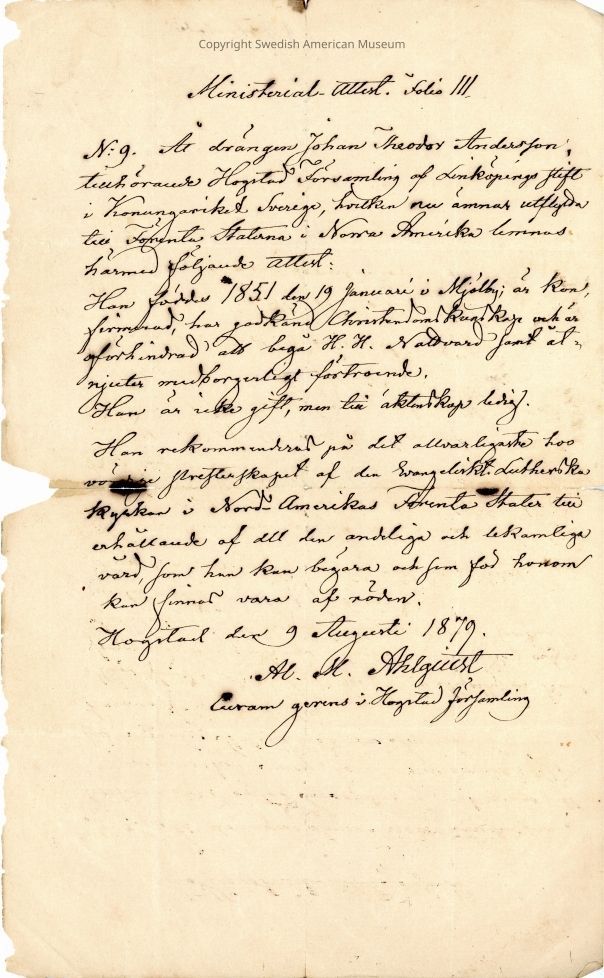 Copyright Swedish American Museum
Ministerial-Attest. Folio III
N:o 9. Åt drängen Johan Theodor Andersson,
tillhörande Hogstad Församling af Linköpings stift
i Konungariket Sverige, hvilken nu ämnar utflytta
till Förenta Staterna i Norra Amerika lemnas
härmed följande attest:
Han föddes 1851 den 19 Januari i Mjölby; är kon,
firmerad, har godkänd Christendomskunskap och är
oförhindrad att begå H. H. Nattvard samt åt,
njuter medborgerligt förtroende.
Han är icke gift, men till äktenskap ledig.
Han rekommenderas på det allvarligaste hos
presterskapet af den Evangeliskt Lutherska
kyrkan i Nord-Amerikas Förenta Stater till
erhållande af all den andeliga och lekamliga
vård som han kan begära och som för honom
kan finnas vara af nöden.
Hogstad den 9 Augusti 1879.
Al. M. Ahlquist
Curam gerens i Hogstad församling